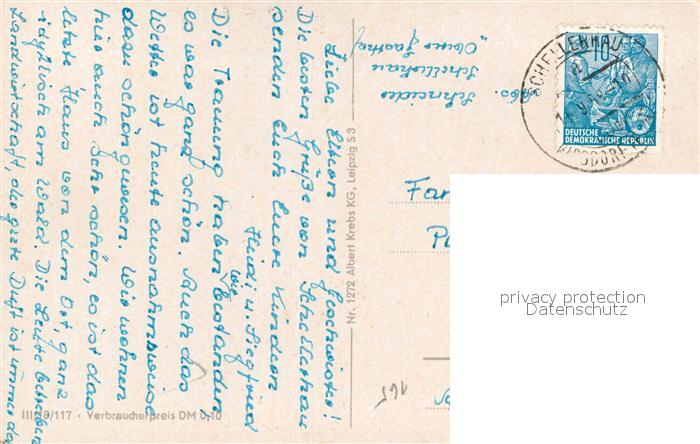 Liebe Eltern und Geschwister!
Die besten Grüße von Schellerhau
senden Euch Eure Kinder
Heidi u. Siegfried
Die Trauung haben wir bestanden
es war ganz schön. Auch das
Wetter ist heute ausnahmsweise
dazu schön gewesen. Wir wohnen
hier auch sehr schön, es ist das
letzte Haus von dem Ort, ganz
idyllisch am Wald. Die Leute betreiben
Landwirtschaft, der gute Duft ist immer da
III/18/117 · Verbraucherpreis DM 0,10
Nr. 1272 Albert Krebs KG, Leipzig S 3
Schneider
Schellerhau
"Oberer Gasthof"
SCHELLERHAU
KIPSDORF
10
DEUTSCHE
DEMOKRATISCHE REPUBLIK
Fam
165
privacy protection
Datenschutz